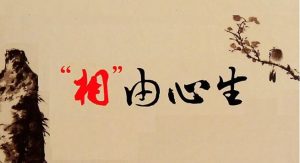 “相”由心生